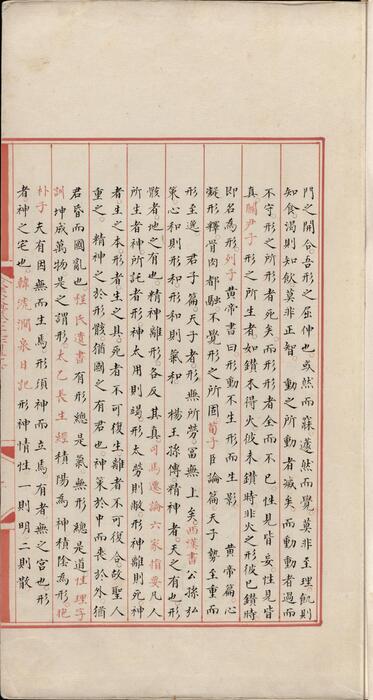 門之開合吾形之屈伸也或然而寐蘧然而覺莫非至理飢則
知食渴則知飲莫非正智 動之所動者滅矣而動動者過而
不守形之所形者死矣而形形者全而不已性見皆妄性見皆
真關尹子形之所生者如鑽木得火彼未鑽時非火之形彼已鑽時
即名為形列子黄帝書曰形動不生形而生影 黄帝篇心
凝形釋骨肉都融不覺形之所固荀子臣論篇天子勢至重而
形至逸 君子篇天子者形無所勞尊無上矣西漢書公孫弘
策心和則形和形和則氣和 楊王孫傳精神者天之有也形
骸者地之有也精神離形各反其真司馬遷論六家指要凡人
所生者神所託者形神太用則竭形太勞則敝形神離則死神
者生之本形者生之具死者不可復生離者不可復合故聖人
重之 精神之於形骸猶國之有君也神策於中而喪於外猶
君昏而國亂也程氏遺書有形總是氣無形總是道性理字
訓坤成萬物是之謂形太乙長生經積陽為神積陰為形抱
朴子夫有因無而生焉形須神而立焉有者無之宮也形
者神之宅也韓淲澗泉日記形神情性一則明二則散